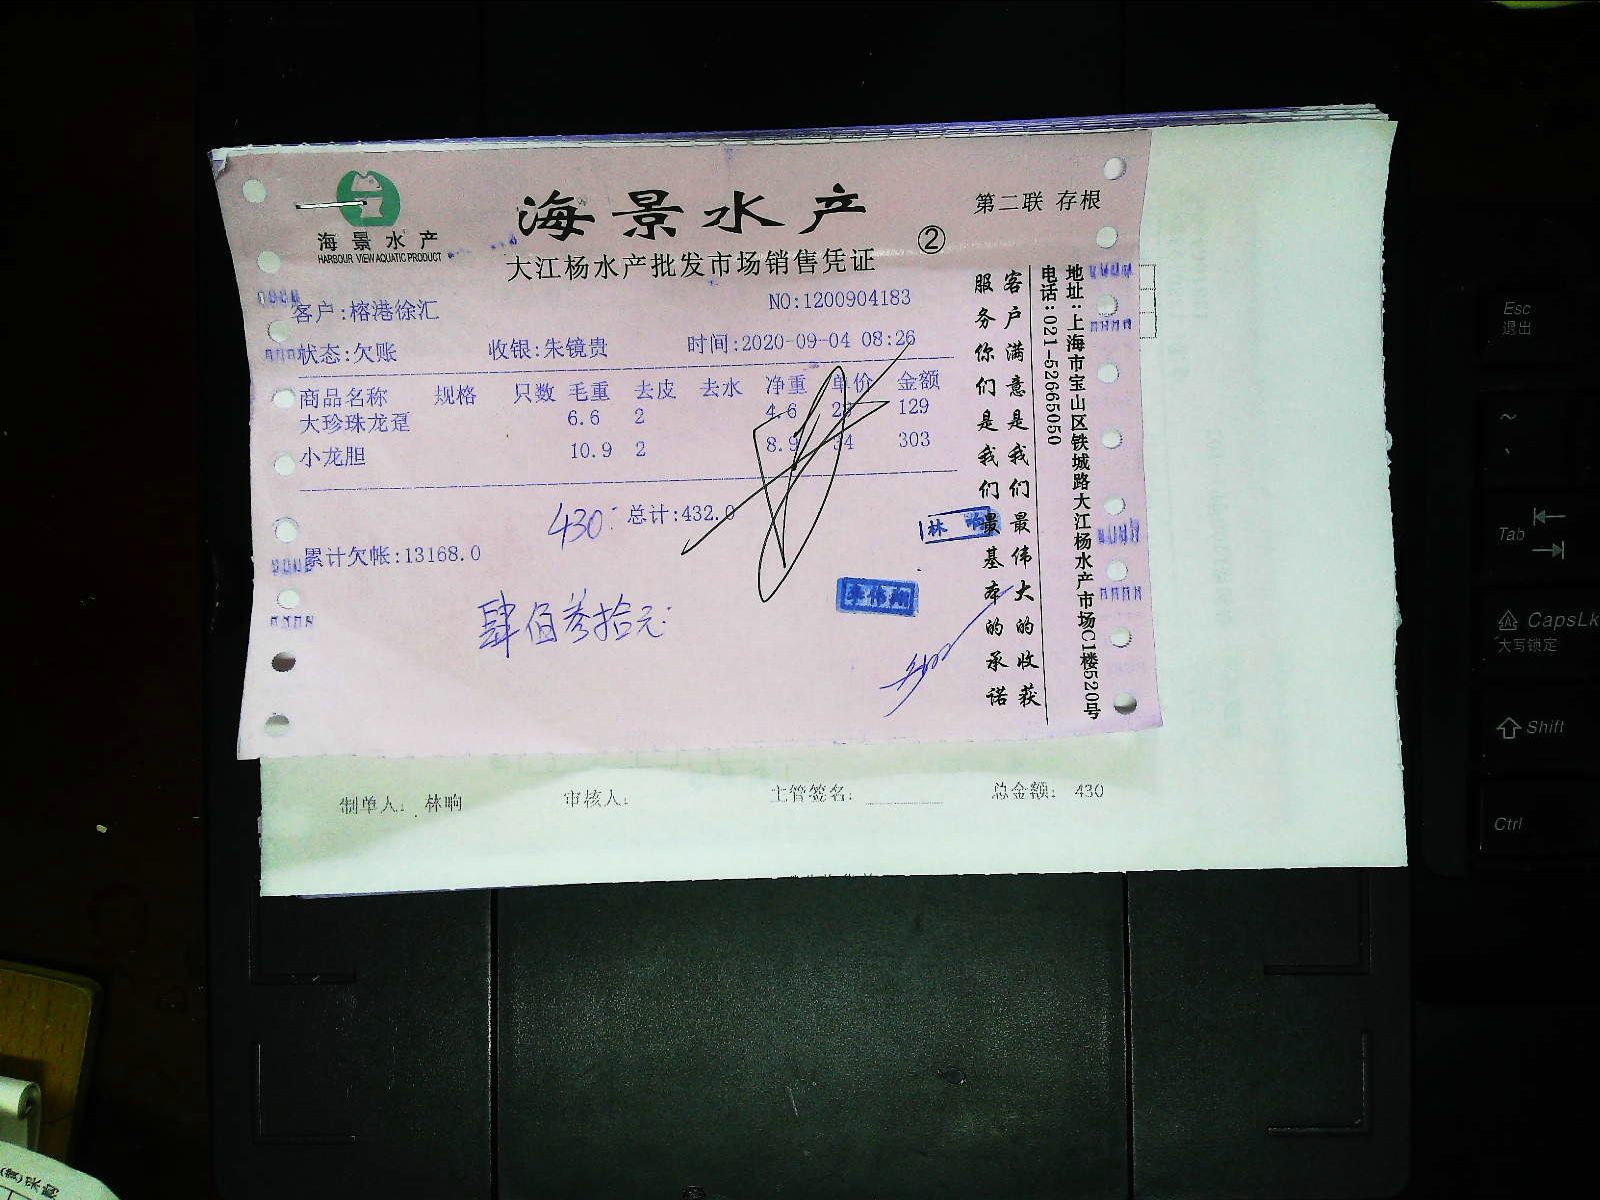 海景水产
HARBOUR VIEW AQUATIC PRODUCT
海景水产
第二联 存根
大江杨水产批发市场销售凭证 ②
NO:1200904183
客户:榕港徐汇
状态:欠账 收银:朱镜贵 时间:2020-09-04 08:26
商品名称 规格 只数 毛重 去皮 去水 净重 单价 金额
大珍珠龙趸 6.6 2 4.6 129
小龙胆 10.9 2 8.9 34 303
430 总计:432.0
累计欠帐:13168.0
肆佰叁拾元
林响
客户满意是我们最伟大的收获
服务你们是我们最基本的承诺
地址:上海市宝山区铁城路大江杨水产市场C1楼520号
电话:021-52665050
制单人: 林响 审核人: 主管签名: 总金额: 430
Esc
退出
~
Tab
CapsLk
大写锁定
Shift
Ctrl